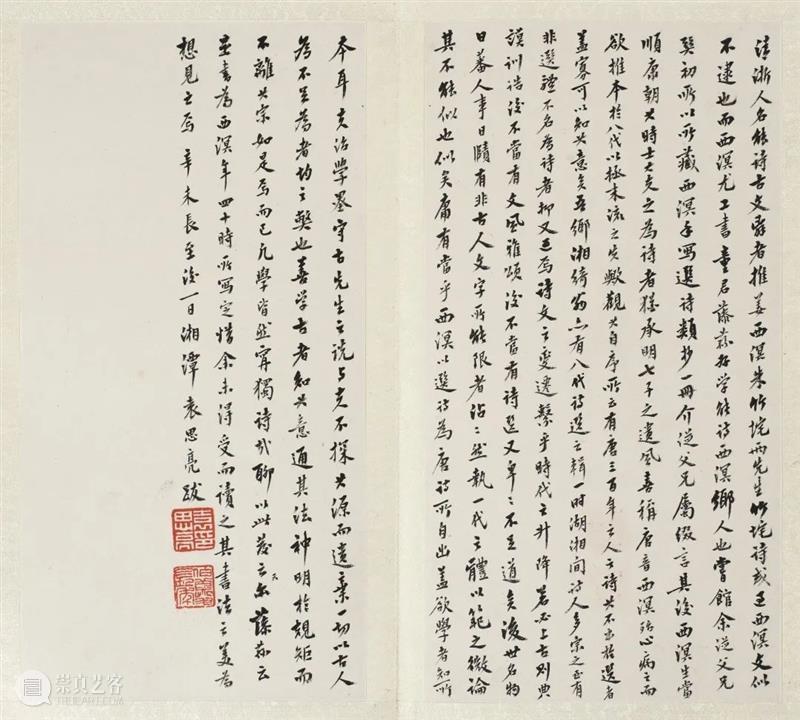 清浙人名能诗古文辞者推姜西溟朱竹垞两先生竹垞诗或过西溟文似
不逮也而西溟尤工书童君藤荪好学能诗西溟乡人也尝馆余从父兄
癸初所以所藏西溟手写选诗类抄一册介从父兄属缀言其后西溟生当
顺康朝其时士大夫之为诗者犹承明七子之遗风喜称唐音西溟殆心病之而
欲推本于八代以极末流之失欤观其自序所云有唐三百年之人之诗其不出于选者
盖寡可以知其意矣吾乡湘绮翁亦有八代诗选之辑一时湖湘间诗人多宗之至有
非选体不名为诗者抑又过焉诗文之变迁系乎时代之升降若必上古则典
谟训诰后不当有文风雅颂后不当有诗选又卑卑不足道矣后世名物
日蕃人事日赜有非古人文字所能限者沾沾然执一代之体以范之微论
其不能似也似矣庸有当乎西溟以选诗为唐诗所自出盖欲学者知所
本耳夫治学墨守古先生之说与夫不探其源而遗弃一切以古人
为不足为者均之弊也善学古者知其意通其法神明于规矩而
不离其宗如是焉而已凡学皆然宁独诗哉聊以此发之尔藤荪云
并书为西溟年四十时所写定惜余未得受而读之其书法之美为
想见之焉辛未长至后一日湘潭袁思亮跋
崇真艺客